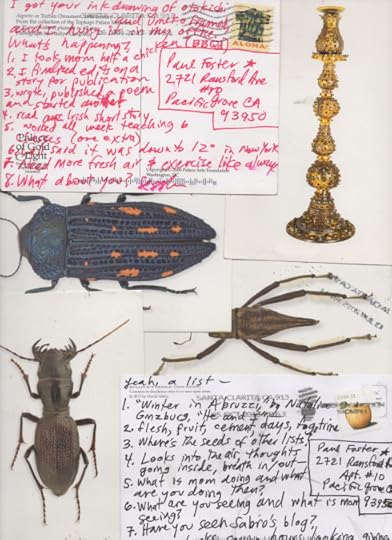 I got your ink drawing of otokichi
Aigrette or Turban Ornament
SANTA CLARITA CA 913
From the collection of the Topkapi Palace
dual limit frames
and am
in my
of the
What's happening?
ken
BBQ
ALOHA
1. I took mom half a chick
2. I finished editing a
story for publication
3. wrote, published a poem
and started another
4. read
Irish short story
5. worked all week teaching 6
classes (one extra)
Palace
of Gold
& Light
said it was down to 12° in New York
Copyright 2000 Palace Arts Foundation
Washington, DC
7. Need more fresh air & exercise like always
8. What about you?
Paul Foster
2721 Ransford Ave
#10
Pacific Grove CA
93950
Yeah, a list —
SANTA CLARITA CA 913
1. "Winter in Abruzzi," by Natalia
Ginzburg, "He and I"
2. Flesh, fruit, cement days, ragtime
3. Where's the seeds of other lists,
4. Looks into the air, thoughts
going inside, breath in/out
5. What is mom doing and what
are you doing then?
6. What are you seeing and what is mom
seeing?
7. Have you seen Sabro's blog?
Paul Foster
2721 Ransford Ave
Apt. #10
Pacific Grove CA
93950